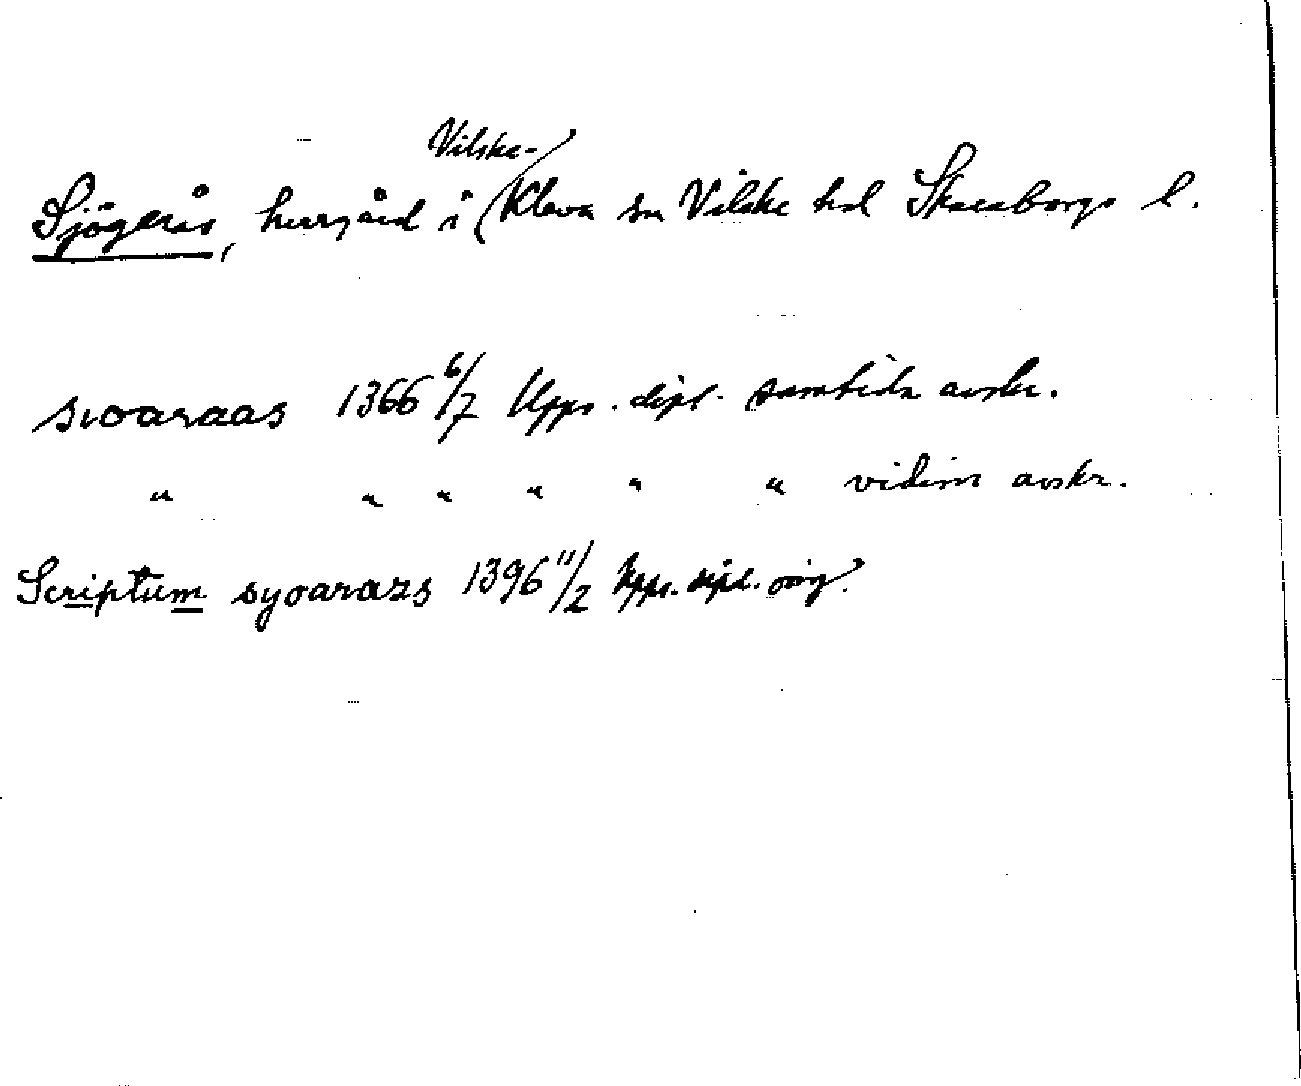 Sjögerås, herrgård i Vilske-Kleva sn Vilske hd Skaraborgs l.
svoaraas 1366 6/7 Upps. dipl. samtida avskr.
" " " " " " vidim avskr.
Scriptum syoaraas 1396 11/2 Upps. dipl. orig.